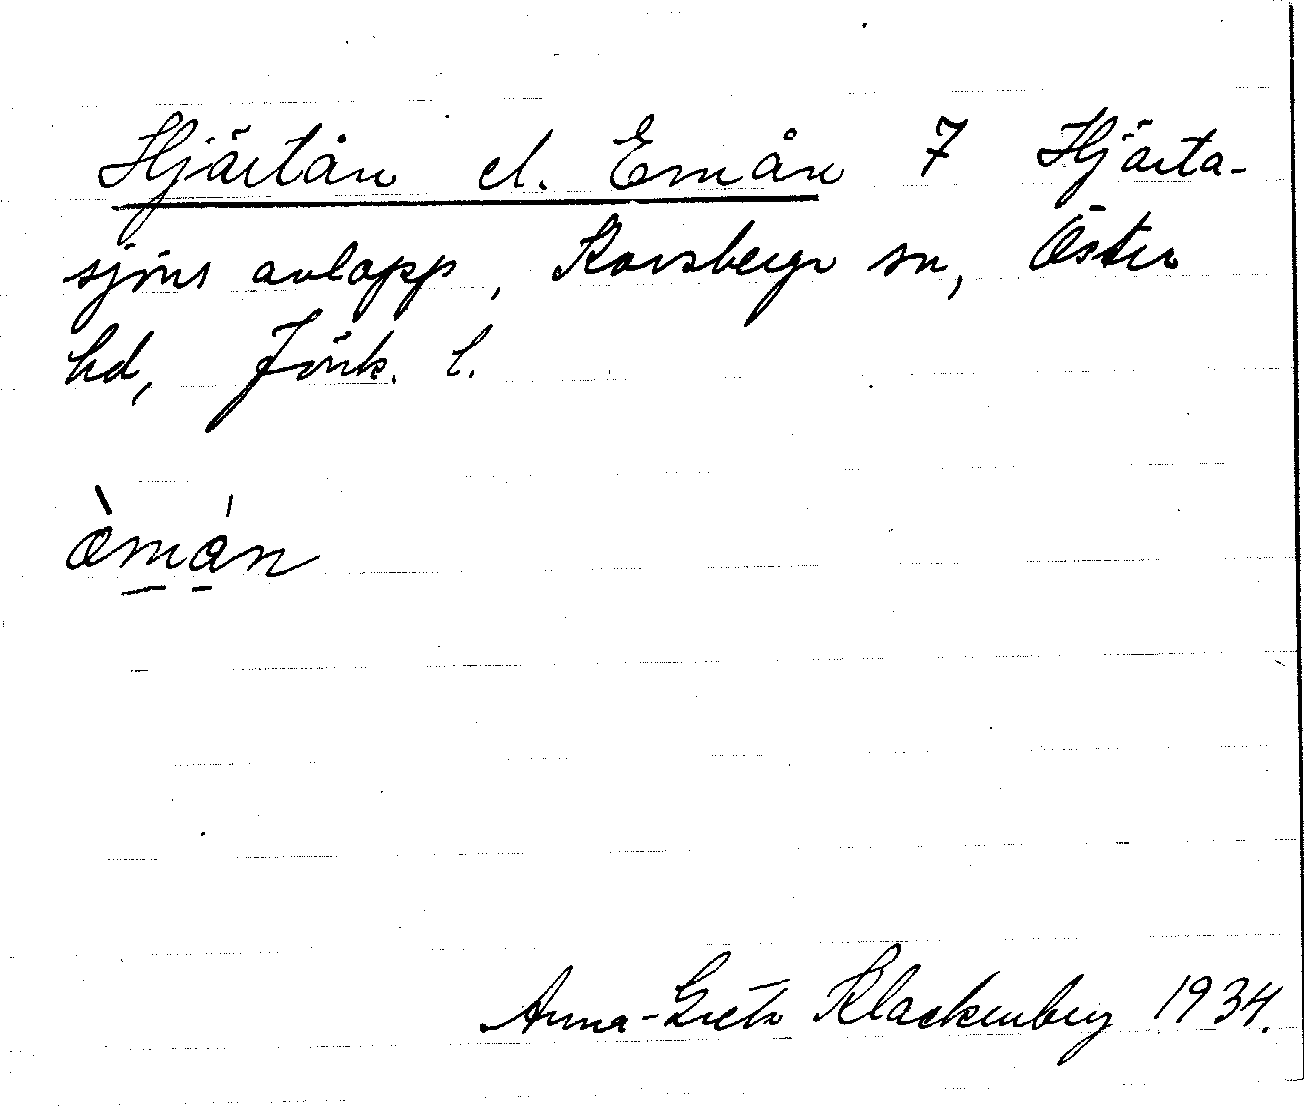 Hjärtån el. Emån 7 Hjärta-
sjöns avlopp, Korsberga sn, Östra
hd, Jönk. l.
òmán
Anna-Greta Klackenberg 1934.